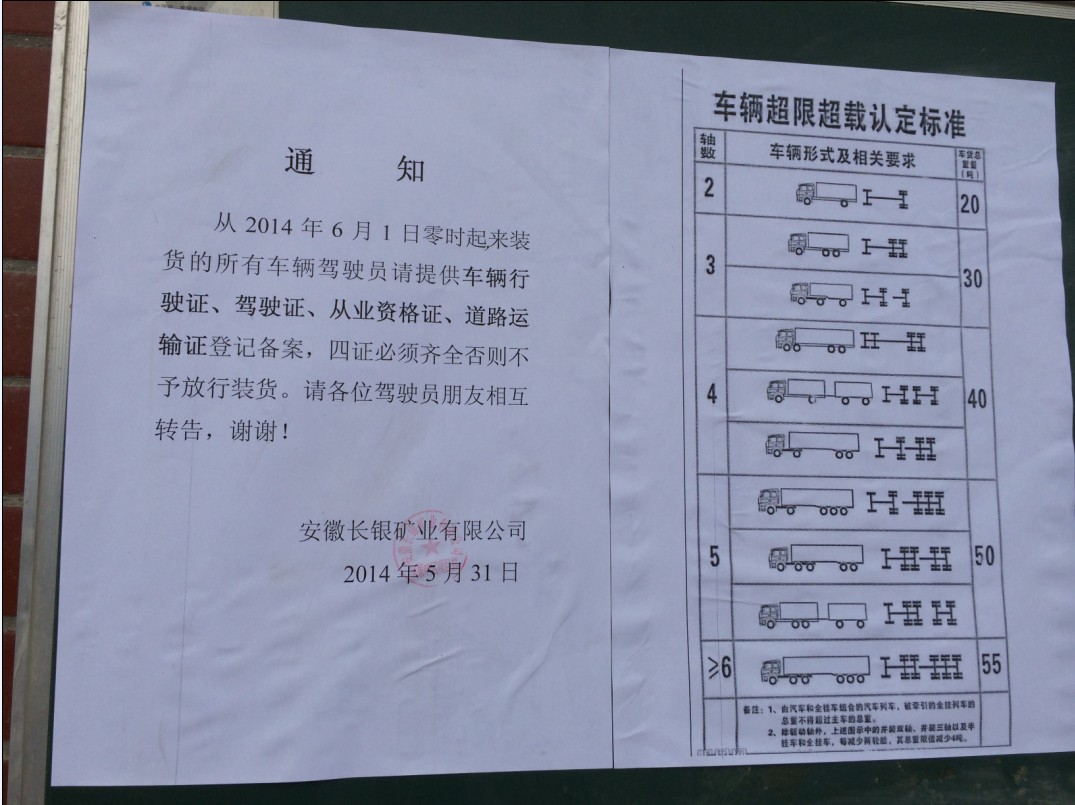 通 知
从 2014 年 6 月 1 日零时起,来装
货的所有车辆驾驶员请提供车辆行
驶证、驾驶证、从业资格证、道路运
输证登记备案，四证必须齐全否则不
予放行装货。请各位驾驶员朋友相互
转告，谢谢！
安徽长银矿业有限公司
2014 年 5 月 31 日
车辆超限超载认定标准
轴数
车辆形式及相关要求
车货总重量（吨）
2
20
3
30
4
40
5
50
≥6
55
备注：1、由汽车和全挂车组合的汽车列车，被牵引的全挂列车的
总重不得超过主车的总重。
2、除驱动轴外，上述图示中的并装双轴、并装三轴以及半
挂车和全挂车，每减少两轮胎，其总重限值减少4吨。